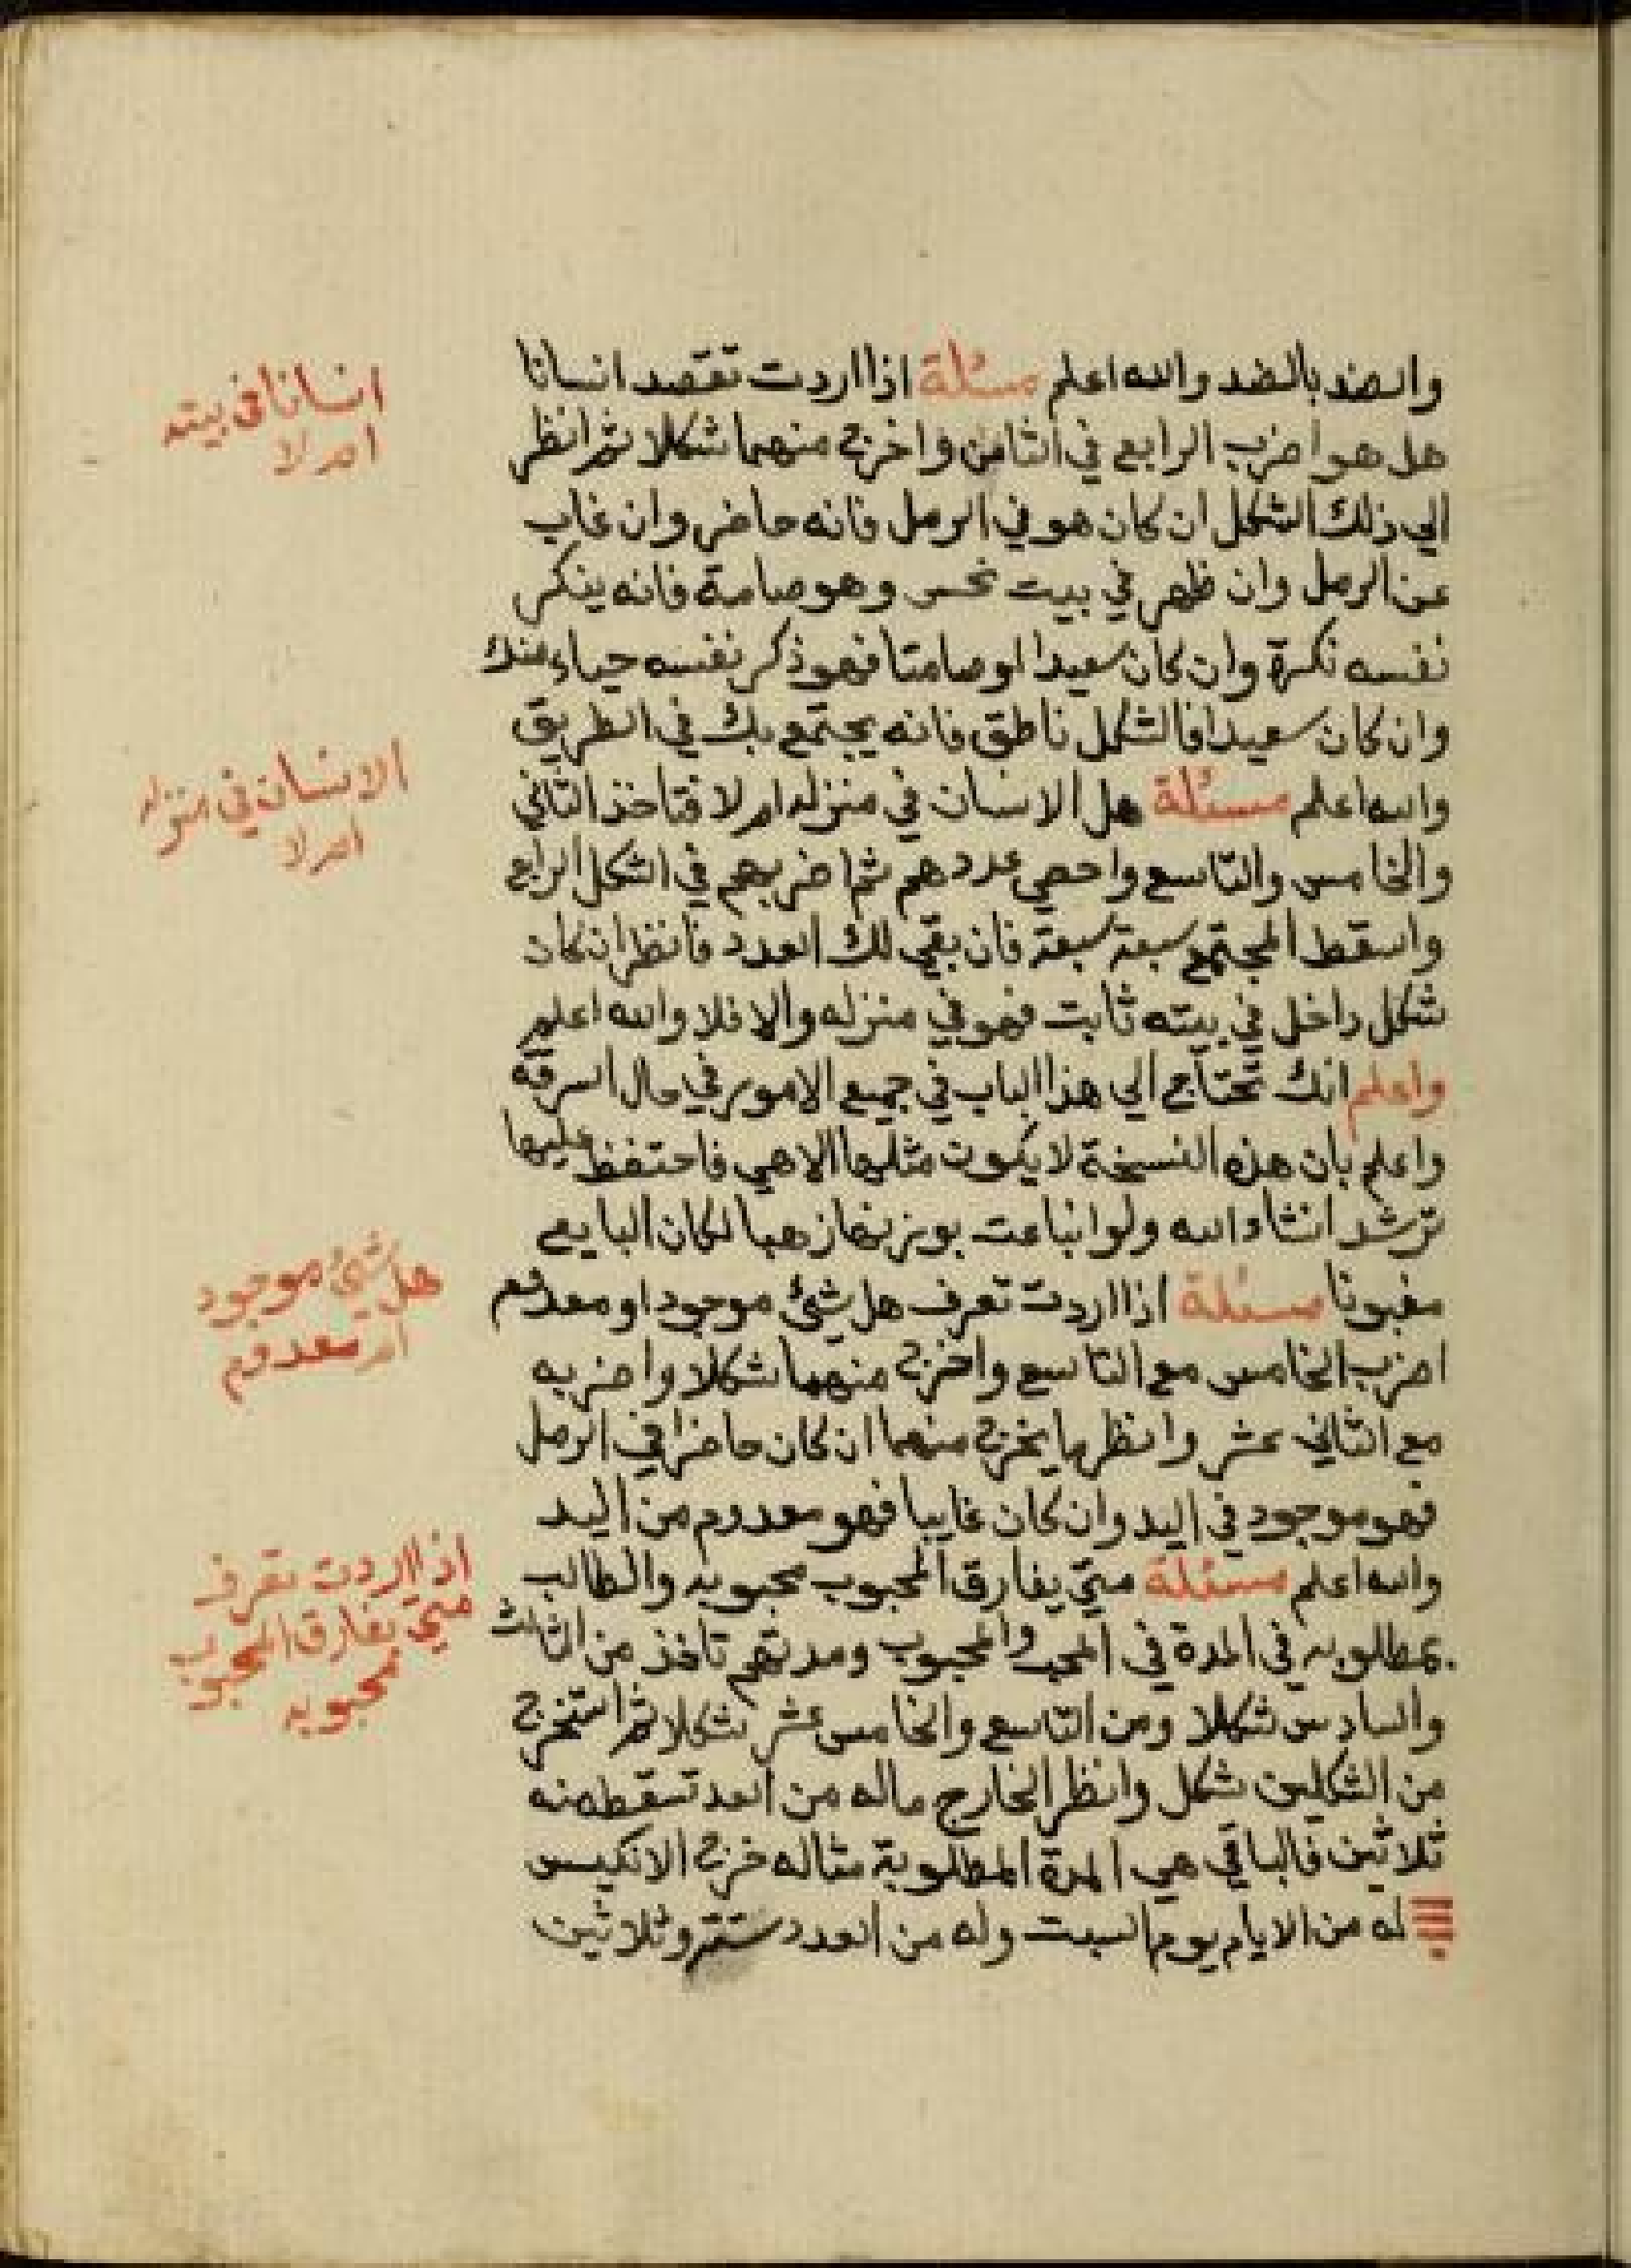 والضد بالضد والله اعلم مسئلة اذا اردت تقصد انسانا
هل هو اضرب الرابع في الثامن واخرج منهما شكلا ثم انظر
الي ذلك الشكل ان كان هو في الرمل فانه حاضر وان غاب
عن الرمل وان ظهر في بيت نحس وهو صامة فانه ينكر
نفسه نكرة وان كان سعيدا لو صامتا فهو ذكر نفسه حياء منك
وان كان سعيدا فالشكل ناطق فانه يجتمع بك في الطريق
والله اعلم مسئلة هل الانسان في منزله ام لا فتاخذ الثاني
والخامس والتاسع واحصي عددهم ثم اضربهم في الشكل الرابع
واسقط المجتمع سبعة سبعة فان بقي لك العدد فانظر ان كان
شكل داخل في بيته ثابت فهو في منزله والا فلا والله اعلم
واعلم انك تحتاج الي هذا الباب في جميع الامور في حال السرقة
واعلم بان هذه النسخة لا يكون مثلها الا هي فاحتفظ عليها
ترشد انشاء الله ولو انباعت بوزنها زهبا لكان البايع
مغبونا مسئلة اذا اردت تعرف هل شئ موجود او معدوم
اضرب الخامس مع التاسع واخرج منهما شكلا واضربه
مع الثاني عشر وانظر ما يخرج منهما ان كان حاضرا في الرمل
فهو موجود في اليد وان كان غايبا فهو معدوم من اليد
والله اعلم مسئلة متي يفارق المحبوب محبوبه والطالب
بمطلوبه في المدة في المحب والمحبوب ومدتهم تاخذ من الثالث
والسادس شكلا ومن التاسع والخامس عشر شكلا ثم استخرج
من الشكلين شكل وانظر الخارج ماله من العدد تسقط منه
ثلاثين فالباقي هي المدة المطلوبة مثاله خرج الانكيس
له من الايام يوم السبت وله من العدد ستة وثلاثين
انسانا في بيته
ام لا
الانسان في منزله
ام لا
هل شئ موجود
ام معدوم
اذا اردت تعرف
متي يفارق المحبوب
محبوبه